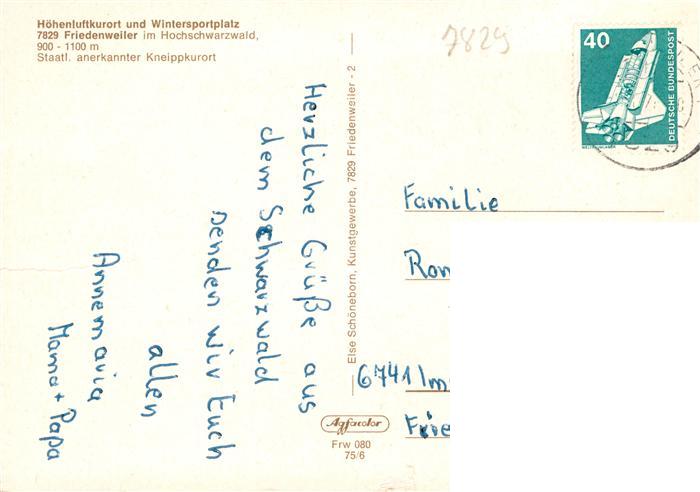 Höhenluftkurort und Wintersportplatz
7829 Friedenweiler im Hochschwarzwald,
900 - 1100 m
Staatl. anerkannter Kneippkurort
7829
40
DEUTSCHE BUNDESPOST
Herzliche Grüße aus
dem Schwarzwald
senden wir Euch
allen
Annemaria
Mama + Papa
Else Schöneborn, Kunstgewerbe, 7829 Friedenweiler - 2
Familie
6741
Agfacolor
Frw 080
75/6